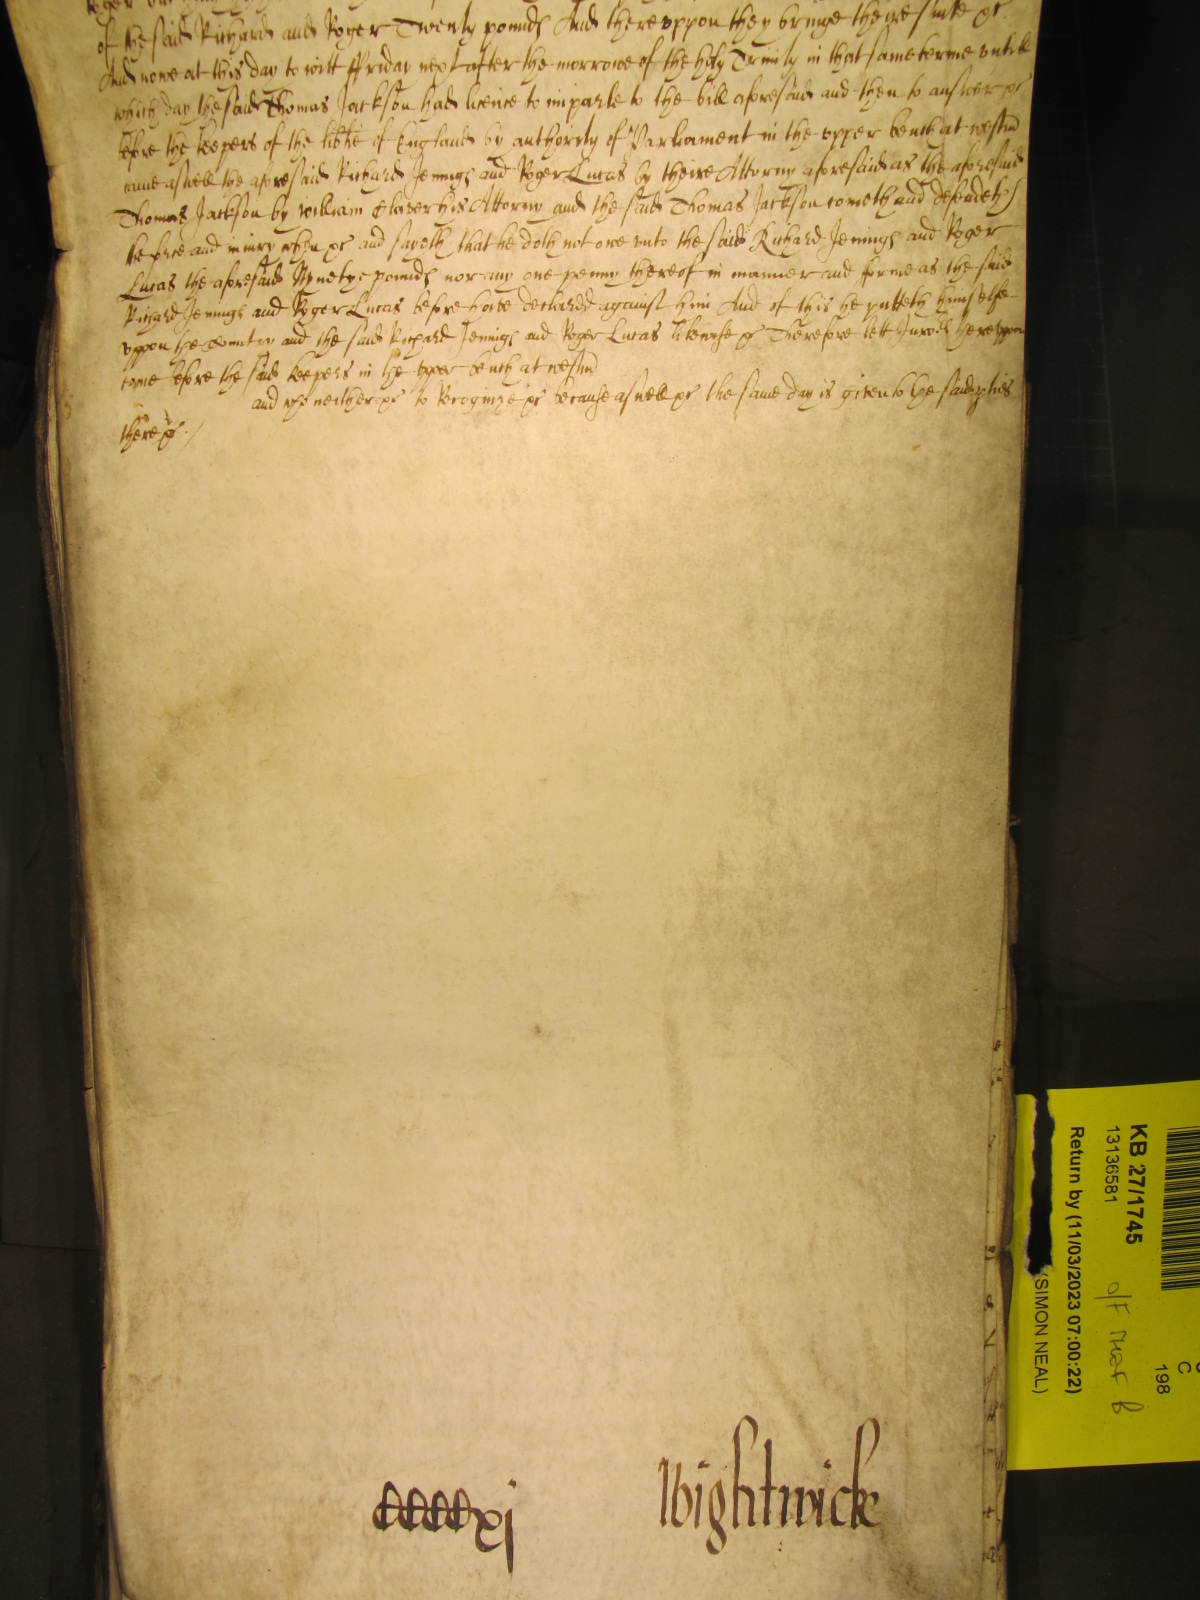 of the said Richard and Roger Twenty pounds And thereuppon they bringe theire suite &c
And nowe at this day to witt ffriday next after the morrowe of the holy Trinity in that same terme untill
which day the said Thomas Jackson had licence to imparle to the bill aforesaid and then to answer &c
before the keepers of the lib̄tie of England by authority of Parliament in the upper bench at westm̄
came aswell the aforesaid Richard Jenings and Roger Lucas by theire Attorny aforesaid as the aforesaid
Thomas Jackson by william his Attorny and the said Thomas Jackson cometh and defendeth
the force and iniury when &c and sayeth that he doth not owe unto the said Richard Jenings and Roger
Lucas the aforesaid Nynetye pounds nor any one penny thereof in manner and forme as the said
Richard Jenings and Roger Lucas before have declared against him And of this he putteth himselfe
uppon the Countrey and the said Richard Jenings and Roger Lucas likewise &c Therefore lett Jurors thereuppon
come before the said keepers in the upper bench at westm̄
and who neither &c to Recognize &c because aswell &c the same day is given to the said p̱ties
there &c
CCCCxj
Wightwick
KB 27/1745
13136581
Return by (11/03/2023 07:00:22)
(SIMON NEAL)
C
198